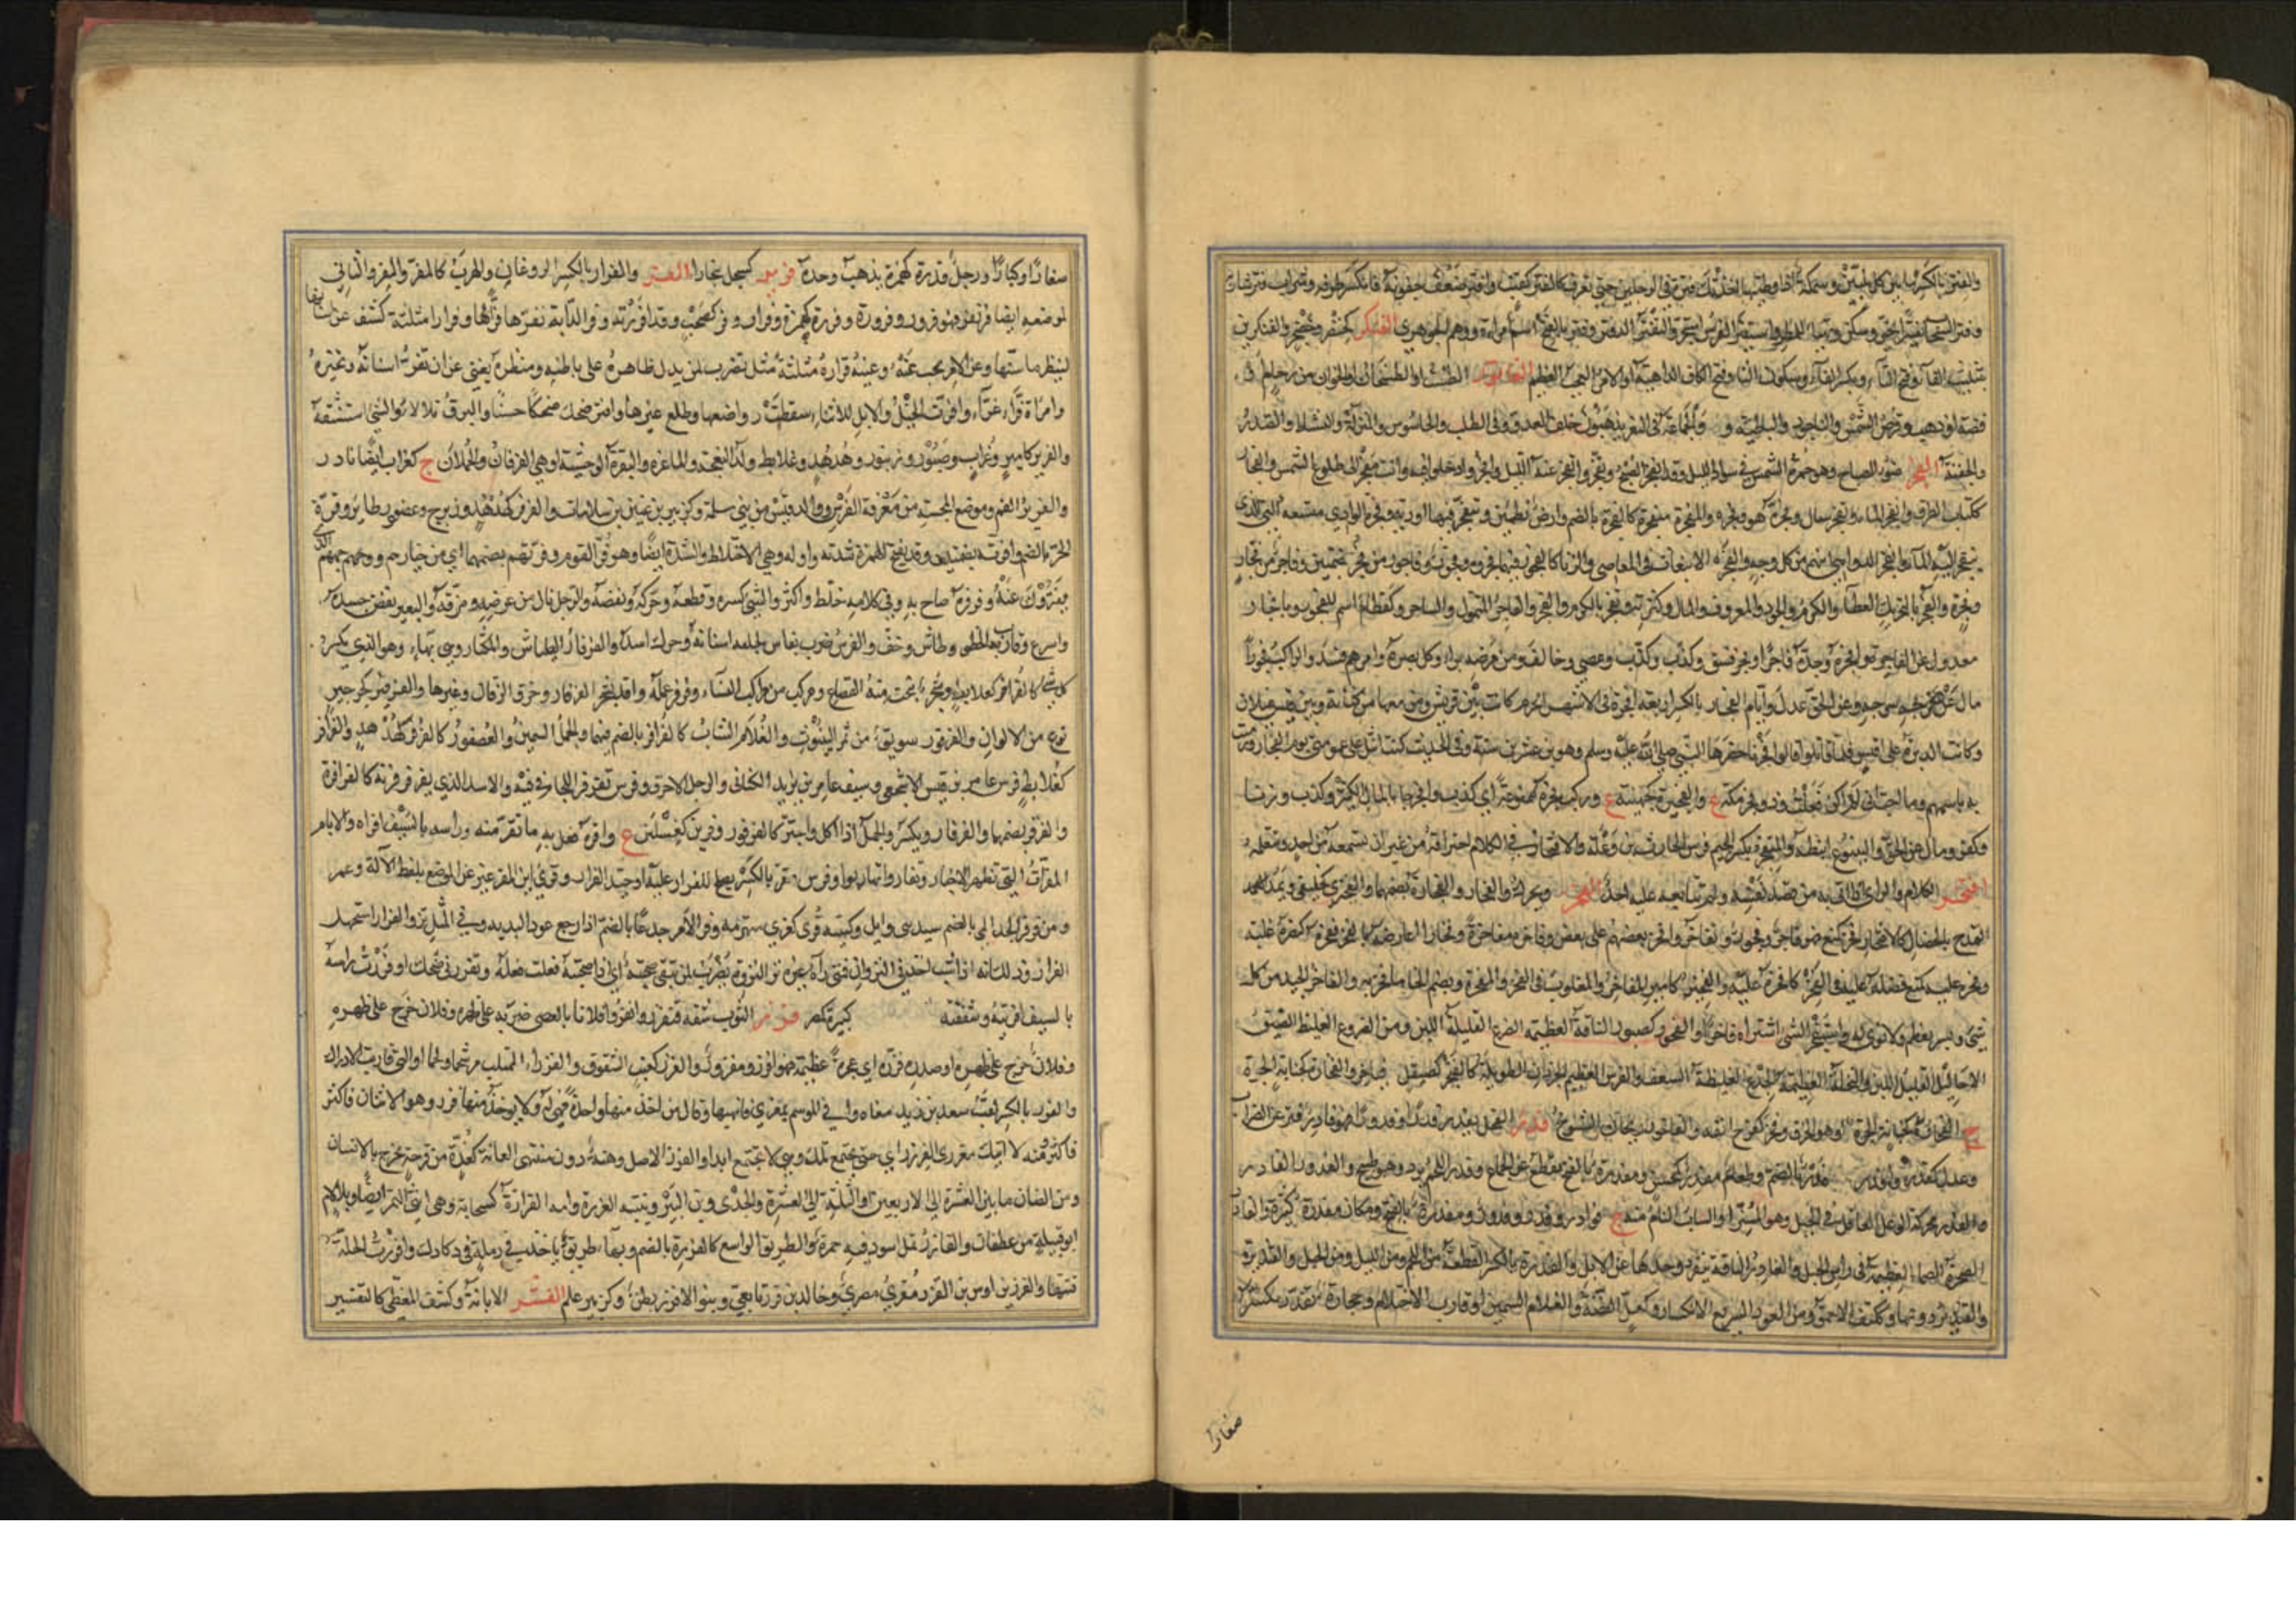 والفِتر بالكسر ما بين كل اصبعين وسمكة اذا وطئتها اخذتك فترة في الرجلين حتى تعرق
وفتر السحاب وسكن وتهيأ للمطر واستفتر الفرس استجر وفتر بالفتح اسم امرأة ووهم الجوهري الفتكر كخنصر
بتثليث الفاء وفتح التاء وبكسر الفاء وسكون التاء وفتح الكاف الداهية او الامر العجب العظيم الفاثور الطست والطشتخان او الخوان من رخام او
فضة او ذهب وقرص الشمس والناجود والباطية و والجماعة في الثغر يذهبون خلف العدو في الطلب والجاسوس والمنزلة والنشاط والصدر
والجفنة الفجر ضوء الصباح وهو حمرة الشمس في سواد الليل وقد انفجر الصبح وتفجر وانفجر عنه الليل وافجروا دخلوا فيه وانت مفجر الى طلوع الشمس والفجار
ككتاب الطرق وانفجر الماء وتفجر سال وفجره هو وفجره والمفجرة منفجره كالفجرة بالضم وارض تطمئن وتنفجر فيها اودية وفجرة الوادي متسعه الذي
ينفجر اليه الماء وانفجر الدواهي اتتهم من كل وجه والفجر الانبعاث في المعاصي والزنا كالفجور فيهما فجر فهو فجور وفاجور من فجر بضمتين وفاجر من فجار
وفجرة والفجر بالتحريك العطاء والكرم والجود والمعروف والمال وكثرته وتفجر بالكرم وانفجر والفاجر المتمول والساحر وكقطام اسم للفجور ويا فجار
معدول عن الفاجرة وافجره وجده فاجرا وفجر فسق وكذب وكذّب وعصى وخالف ومن مرضه برأ وكل بصره وامرهم فسد والراكب فجورا
مال عن سرجه وعن الحق عدل وايام الفجار بالكسر اربعة افجرة في الاشهر الحرم كانت بين قريش ومن معها من كنانة وبين قيس عيلان
وكانت الدبرة على قيس فلما قاتلوا قالوا فجرنا حضرها النبي صلى الله عليه وسلم وهو بن عشرين سنة وفي الحديث كنت انبل على عمومتي يوم الفجار ورميت
فيه باسهم وما احب اني لم اكن فعلت وذو فجر محركة ع والفجيرة كجهينة ع وركب فجرة ممنوعة اي كذب وافجر جاء بالمال الكثير وكذب وزنا
وكفر ومال عن الحق والينبوع انبطه والمتفجر بكسر الجيم فرس الحارث بن وعلة والافتجار في الكلام اختراقه من غير ان يسمعه من احد ويتعلمه
افتحر الكلام والراي اذا اتى به من قصد نفسه ولم يتابعه عليه احد الفخر ويحرك والفخار والفخارة بفتحهما والفخيرى كخليفى ويمد
التمدح بالخصال كالافتخار فخر كمنع فهو فاخر وفخور وتفاخروا فخر بعضهم على بعض وفاخره مفاخرة وفخارا عارضه بالفخر ففخره كنصره غلبه
وفخر عليه كمنع فضله عليه في الفخر كافخره عليه والفخير كامير المفاخر والمغلوب في الفخر والمفخرة وبضم الخاء ما فخر به والفاخر الجيد من كل
شيء وبسر يعظم ولا نوى له واستفخر الشيء اشتراه فاخرا والفخور كصبور الناقة العظيمة الضرع القليلة اللبن ومن الضروع الغليظ الضيق
الاحاليل القليل اللبن والنخلة العظيمة الجذع الغليظة السعف والفرس العظيم الجردان الطويله كالفيخر كصيقل فياخر والفخارة كجبانة الجرة
ج الفخار او هو الخزف وفخر كفرح انف والفاخور ريحان الشيوخ فدر الفحل يفدر فدرا وفدورا فهو فادر فتر عن الضراب
وعدل كفدر وافدر فدر بالضم وطعام مفدر كمحسن ومفدرة بالفتح يقطع عن الجماع وفدر اللحم برد وهو طبيخ والفدور الفادر
والفدر محركة الوعل العاقل في الجبل وهو المسن او الشاب التام منه ج فوادر وفدر وفدور ومفدرة بالفتح ومكان مفدرة كثيرة والفادرة
الصخرة الصماء العظيمة في راس الجبل والفادر الناقة تنفرد وحدها عن الابل والفدرة بالكسر القطعة من اللحم ومن الليل ومن الجبل والفنديرة
والفندير دونها وككتف الاحمق ومن العود السريع الانكسار وكعتل الفضة والغلام السمين او قارب الاحتلام وحجارة تفدر تكسر
صغارا
صغارا وكبارا ورجل فدرة كهمزة يذهب وحده فربر كسجل بخارا الفر والفرار بالكسر الروغان والهرب كالمفر والمفر والثاني
لموضعه ايضا فر يفر فهو فرور وفرورة وفررة كهمزة وفرار وفر كصحب وقد افررته وفر الدابة يفرها فرا وفرارا مثلثة كشف عن اسنانها
لينظر ما سنها وعن الامر بحث عنه وعينه فراره مثلثة مثل يضرب لمن يدل ظاهره على باطنه ومنظره يغني عن ان تفر اسنانه وتخبره
وامراة فراء غراء وافرت الخيل والابل للاثناء سقطت رواضعها وطلع غيرها وافتر ضحك ضحكا حسنا والبرق تلالا والشيء استنشقه
والفرير كامير وغراب وصبور وزنبور وهدهد وعلابط ولد النعجة والماعزة والبقرة الوحشية او هي الخرفان والحملان ج كغراب ايضا نادر
والفرير الفم وموضع المجسة من معرفة الفرس ووالد قيس من بني سلمة وكزبير بن عنين بن سلامان والفرفر كهدهد وزبرج وعصفور طائر وفرة
الحر بالضم وافرته بضمتين وقد يفتح الهمزة شدته واوله وهي الاختلاط والشدة ايضا وهو فر القوم وفرتهم بضمهما اي من خيارهم ووجههم الذي
يفترون عنه وفرفره صاح به وفي كلامه خلط واكثر والشيء كسره وقطعه وحركه ونفضه والرجل نال من عرضه ومزقه والبعير نفض جسده
واسرع وقارب الخطو وطاش وخف والفرس ضرب بفاس لجامه اسنانه وحرك راسه والفرفار الطياش والمكثار وهي بهاء وهو الذي يكسر
كل شيء كالفرافر كعلابط وشجر تنحت منه القصاع ومركب من مراكب النساء وفرفر عمله واوقد بشجر الفرفار وخرق الزقاق وغيرها والفرفير كجرجير
نوع من الالوان والفرفور سويق من ثمر الينبوت والغلام الشاب كالفرافر بالضم فيهما والجمل السمين والعصفور كالفرفر كهدهد والفرافر
كعلابط فرس عامر بن قيس الاشجعي وسيف عامر بن يزيد الكناني والرجل الاخرق وفرس يفرفر اللجام في فيه والاسد الذي يفرفر قرنه كالفرافرة
والفرفر بضمهما والفرفار ويكسر والجمل اذا اكل واجتر كالفرفور وفرين كغسلين ع وافره فعل به ما تفر منه وراسه بالسيف افراه والايام
المفرات التي تظهر الاخبار وتفاروا تهاربوا وفرس مفر بالكسر يصلح للفرار عليه او جيد الفرار وقرئ اين المفر عبر عن الموضع بلفظ الآلة وعمر
ومن وفر الخدالي بالضم سيد بني وايل وكتيبة فرى كعزى منهزمة وفر الامر جدعا بالضم اذا رجع عودا لبدئه وفي المثل نزو الفرار استجهل
الفرار وذلك انه اذا شب اخذ في النزوان فمتى رآه غيره نزا لنزوه يضرب لمن تتقى صحبته اي اذا صحبته فعلت فعله وتفرر في ضحك او فزرت راسه
بالسيف افريته وشققته كبيرة كمر فزر الثوب شقه فتفزر وانفزر وفلانا بالعصا ضربه على ظهره وفلان خرج على ظهره
وفلان خرج على ظهره او صدره فزرة اي عجرة عظيمة فهو افزر ومفزور والفزر كعنب الشقوق والفزراء الممتلئة شحما ولحما او التي قاربت الادراك
والفزر بالكسر لقب سعد بن زيد مناة وافى الموسم بمعزى فانهبها وقال من اخذ منها واحدة فهي له ولا يؤخذ منها فزر وهو الاثنان فاكثر
فاكثر منه لا آتيك معزى الفزر اي حتى تجتمع تلك وهي لا تجتمع ابدا والفزر الاصل وهنة دون منتهى العانة كغدة من قرحة تخرج بالانسان
ومن الضان ما بين العشرة الى الاربعين او الثلثة الى العشرة والجدى وبن الببر وبنته الفزرة وامه الفزارة كسحابة وهي انثى النمر ايضا وبلا لام
ابو قبيلة من غطفان والفازر نمل اسود فيه حمرة والطريق الواسع كالفزرة بالضم وبهاء طريق ياخذ في رملة في دكادك وافزرت الجلة
فتتها والفزر بن اوس بن الفزر مقرئ مصري وخالد بن فزر تابعي وبنو الافزر بطن وكزبير علم الفسر الابانة وكشف المغطى كالتفسير